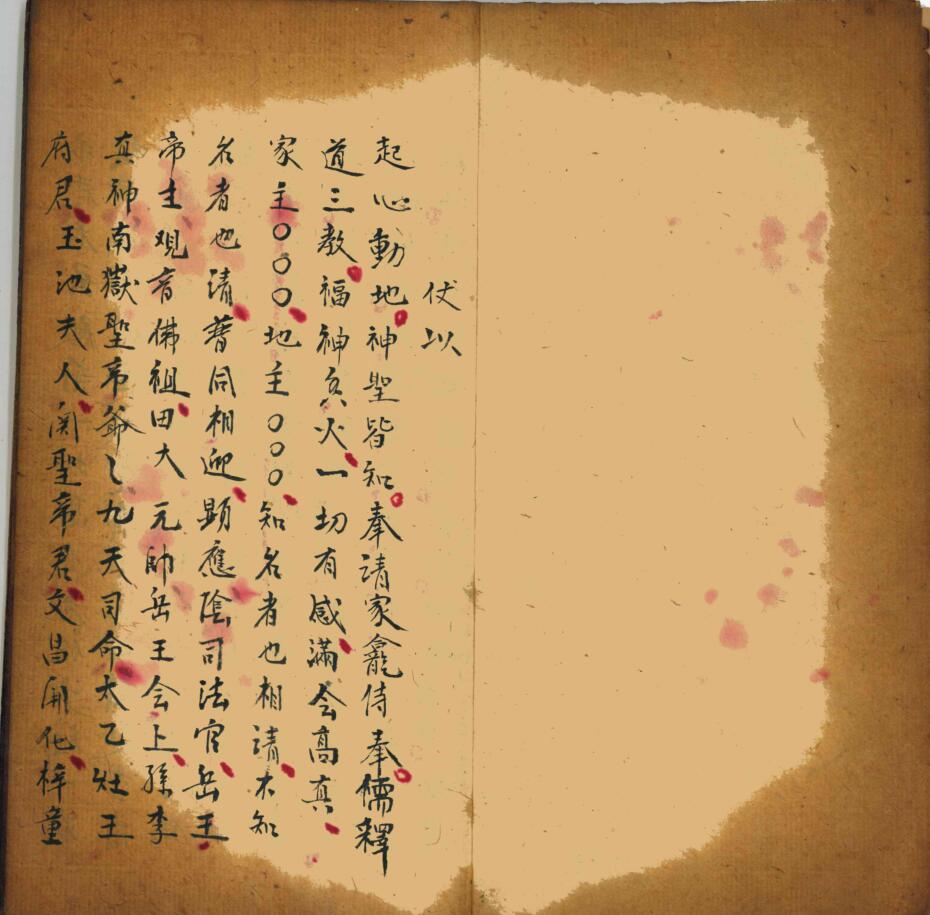 伏以
起心動地神聖皆知奉請家龕侍奉儒釋
道三教福神香火一切有感滿会高真
家主〇〇〇地主〇〇〇知名者也相請不知
名者也清普同相迎顕應陰司法官岳王
帝主观音佛祖田大元帥岳王会上孫李
真神南嶽聖帝爺〻九天司命太乙灶王
府君玉池夫人関聖帝君文昌開化梓童